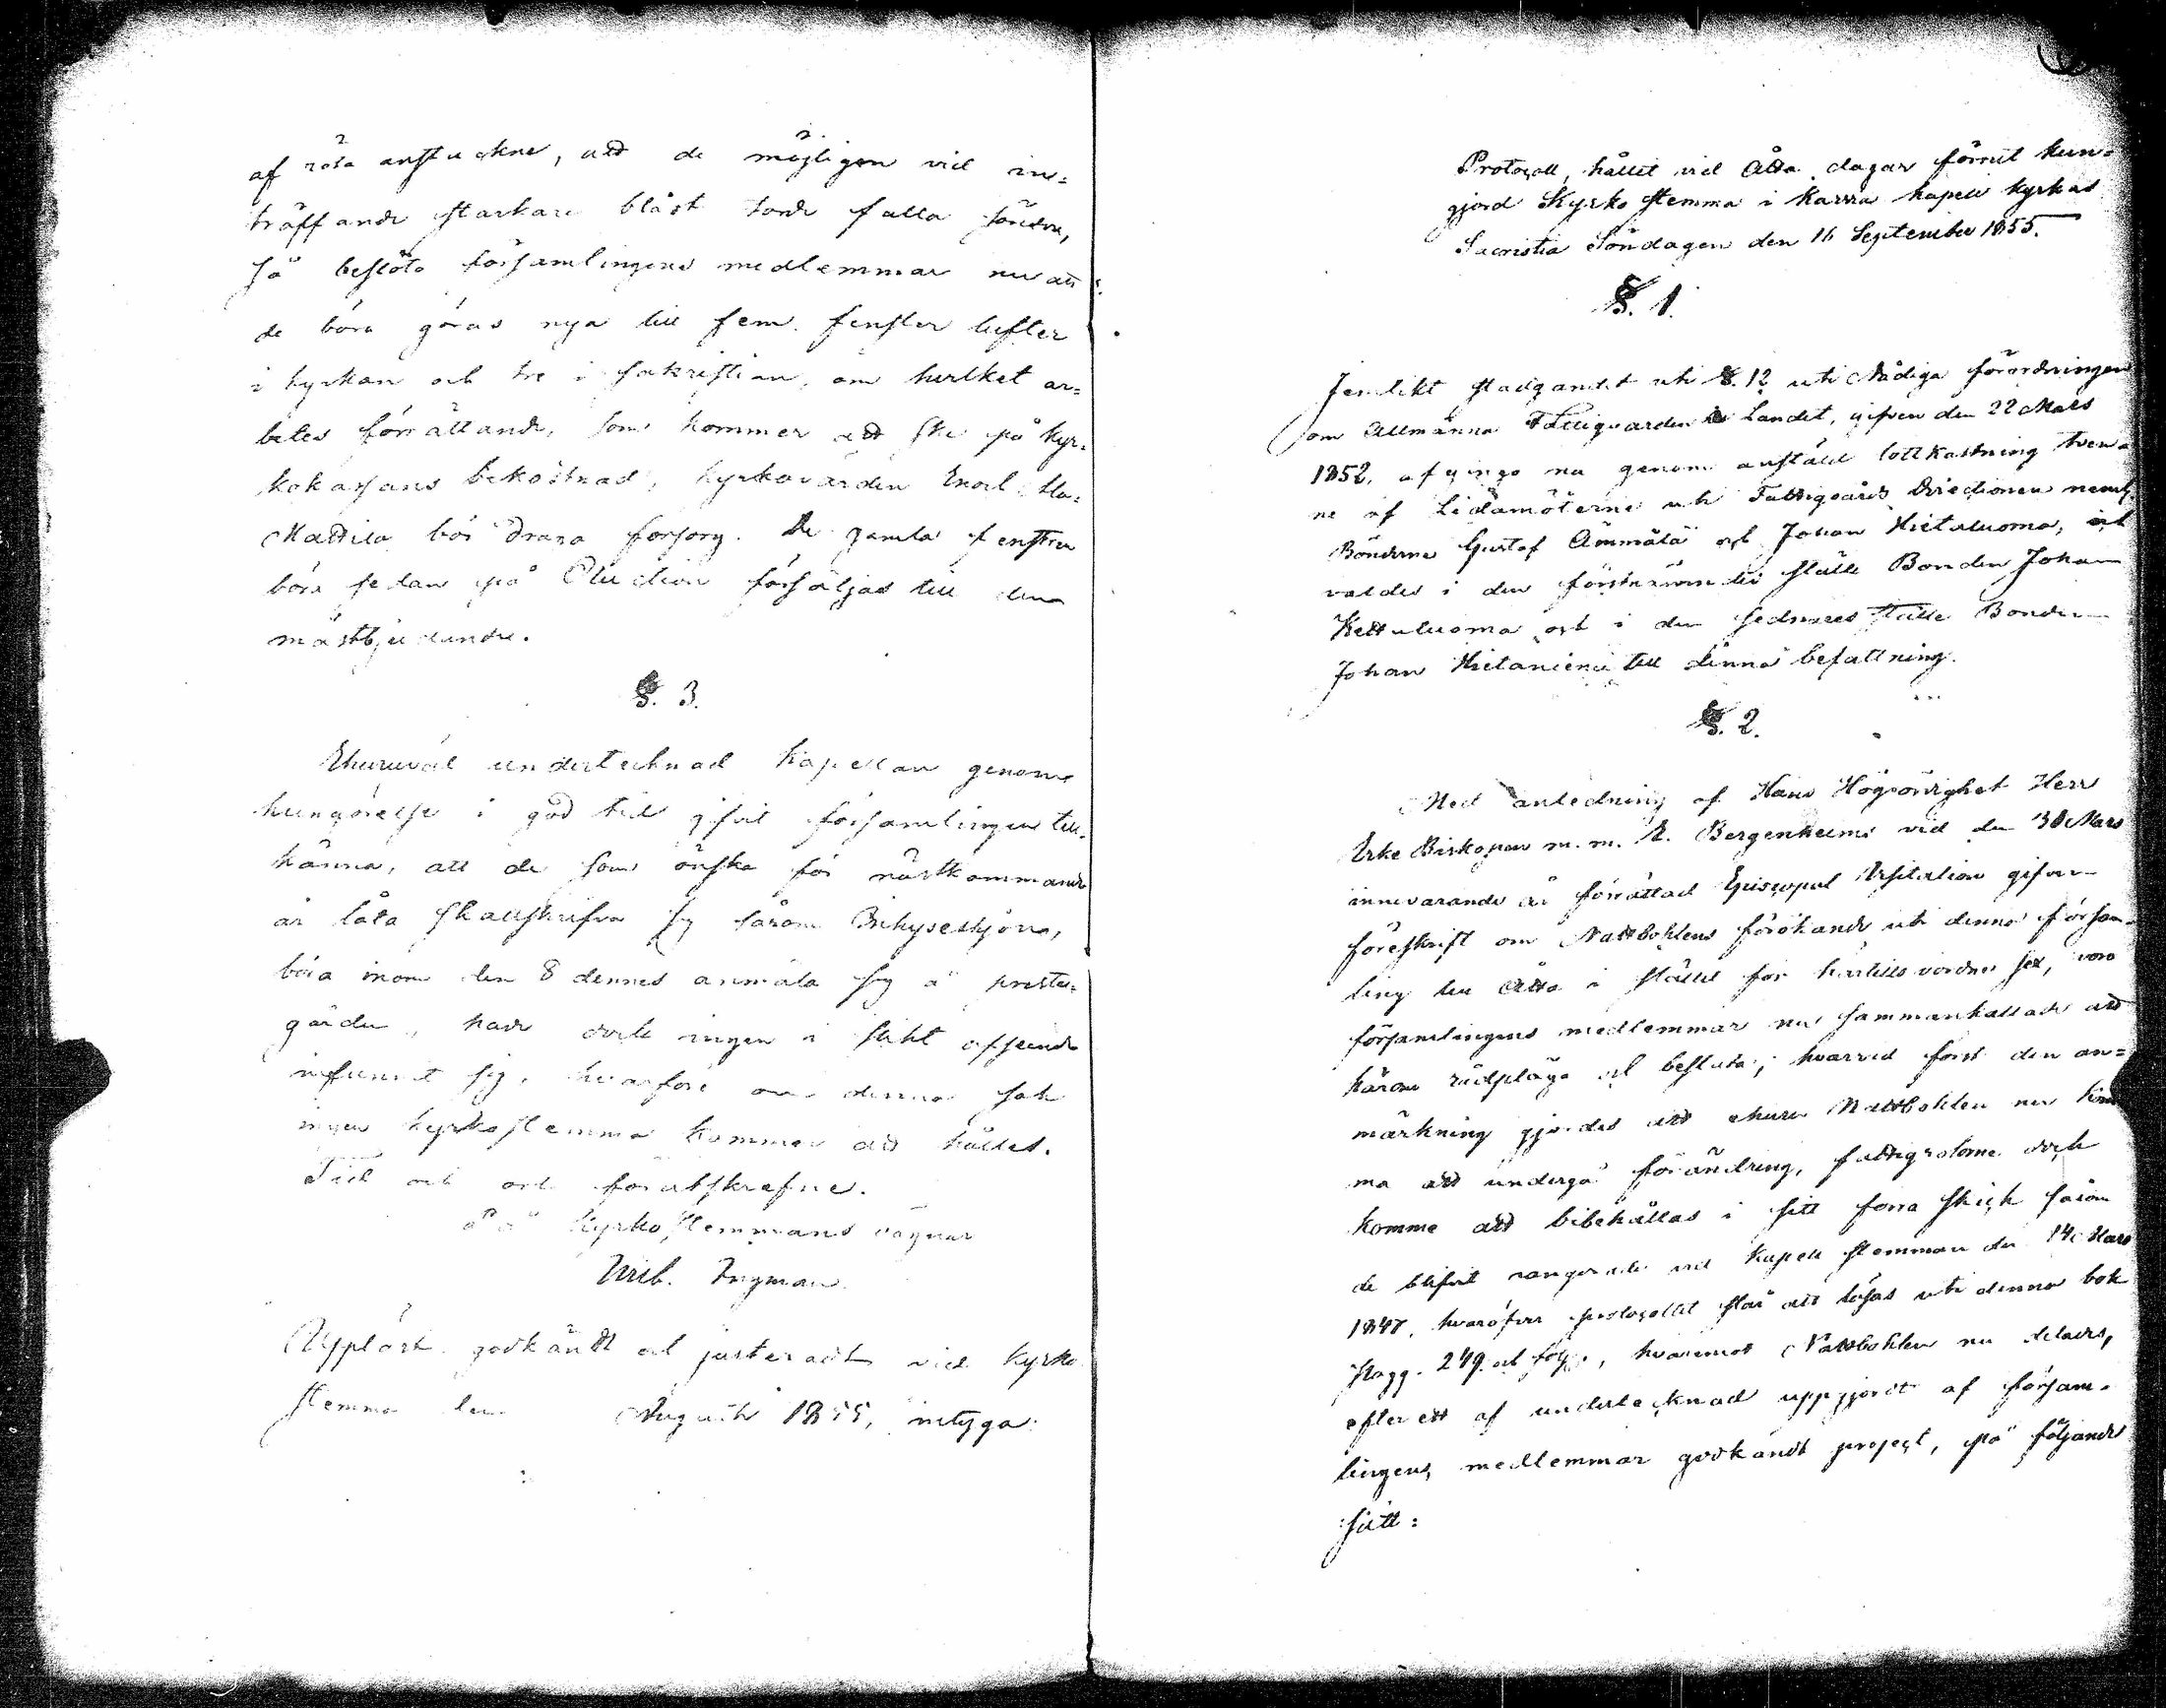 af röta anstuckne, att de möjligen vid in=
träffande starkare blåst torde falla sönder,
så beslöto församlingens medlemmar nu att
de böra göras nya till fem fenster lufter
i kyrkan och tre i sakristian, om hvilket ar=
betes förrättande, som kommer att ske på kyr=
kokassans bekostnad, kyrkovärden
Mattila bör draga försorg. De gamla fenstren
böra sedan på Auction försäljas till den
mästbjudande.
§. 3.
Ehuruväl undertecknad Kapellan genom
kungörelse i god tid gifvit församlingen till=
känna, att de som önska för nästkommande
år låta skattskrifva sig såsom Inhyseshjon,
böra inom den 8 dennes anmäla sig å preste=
gården, hade dock ingen i slikt afseende
infunnit sig, hvarföre om denna sak
ingen kyrkostemma kommer att hållas.
Tid och ort förutskrefne.
På Kyrkostemmans vägnar
Ingman
Uppläst, godkändt och justeradt vid Kyrko
stemma den Augusti 1855, intyga:
Protocoll, hållit vid Åtta dagar förrut kun=
gjord Kyrko stemma i Karvia kapell kyrkas
Sacristia Söndagen den 16 September 1855.
§. 1.
Jemlikt stadgandet uti §. 12 uti Nådiga förordningen
om Allmänna Fattigvården i Landet, gifven den 22 Mars
1852, afgingo nu genom anstäld lottkastning tven=
ne af Ledamöterne uti Fattigvårds Directionen neml.
Bönderne Gustaf Ämmälä och Johan Hietaluoma, och
valdes i den förstnämndes ställe Bonden Johan
Kettuluoma och i den sednares ställe Bonden
Johan Hietaniemi till denna befattning.
§. 2.
Med anledning af Hans Högvördighet Herr
Erke Biskopen m. m. E. Bergenheims vid den 30 Mars
innevarande år förrättad Episcopal Visitation gifven
föreskrift om Nattbohlens förökande uti denna försam=
ling till Åtta i stället för härtills vordne sex, voro
församlingens medlemmar nu sammankallade att
härom rådpläga och besluta; hvarvid först den an=
märkning gjordes att ehuru Nattbohlen nu kom
ma att undergå förändring, fattigrotorne dock
komme att bibehållas i sitt förra skick såsom
de blifvit rangerade vid Kapell stemman den 14 Mars
1847, hvaröfver protocollet står att läsas uti denna bok
pagg. 249 och följ., hvaremot Nattbohlen nu delades,
efter ett af undertecknad uppgjordt af försam=
lingens medlemmar godkändt project, på följande
sätt: